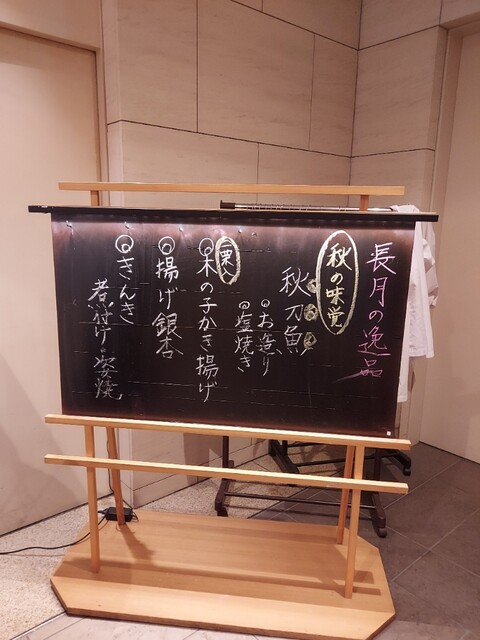 長月の逸品
秋の味覚
秋刀魚
お造り
塩焼き
栗入
木の子かき揚げ
揚げ銀杏
きんき
煮付け・姿焼